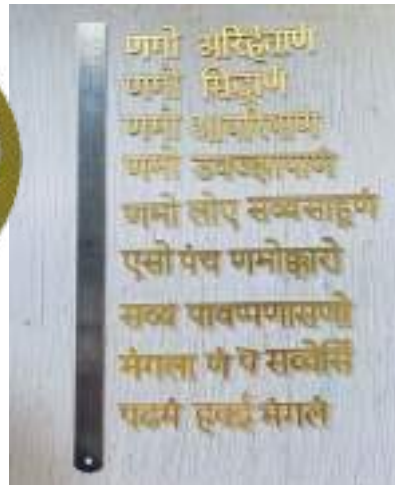 णमो अरिहंताणं
णमो सिद्धाणं
णमो आयरियाणं
णमो उवज्झायाणं
णमो लोए सव्वसाहूणं
एसो पंच णमोक्कारो
सव्व पावप्पणासणो
मंगला णं च सव्वेसिं
पढमं हवई मंगलं